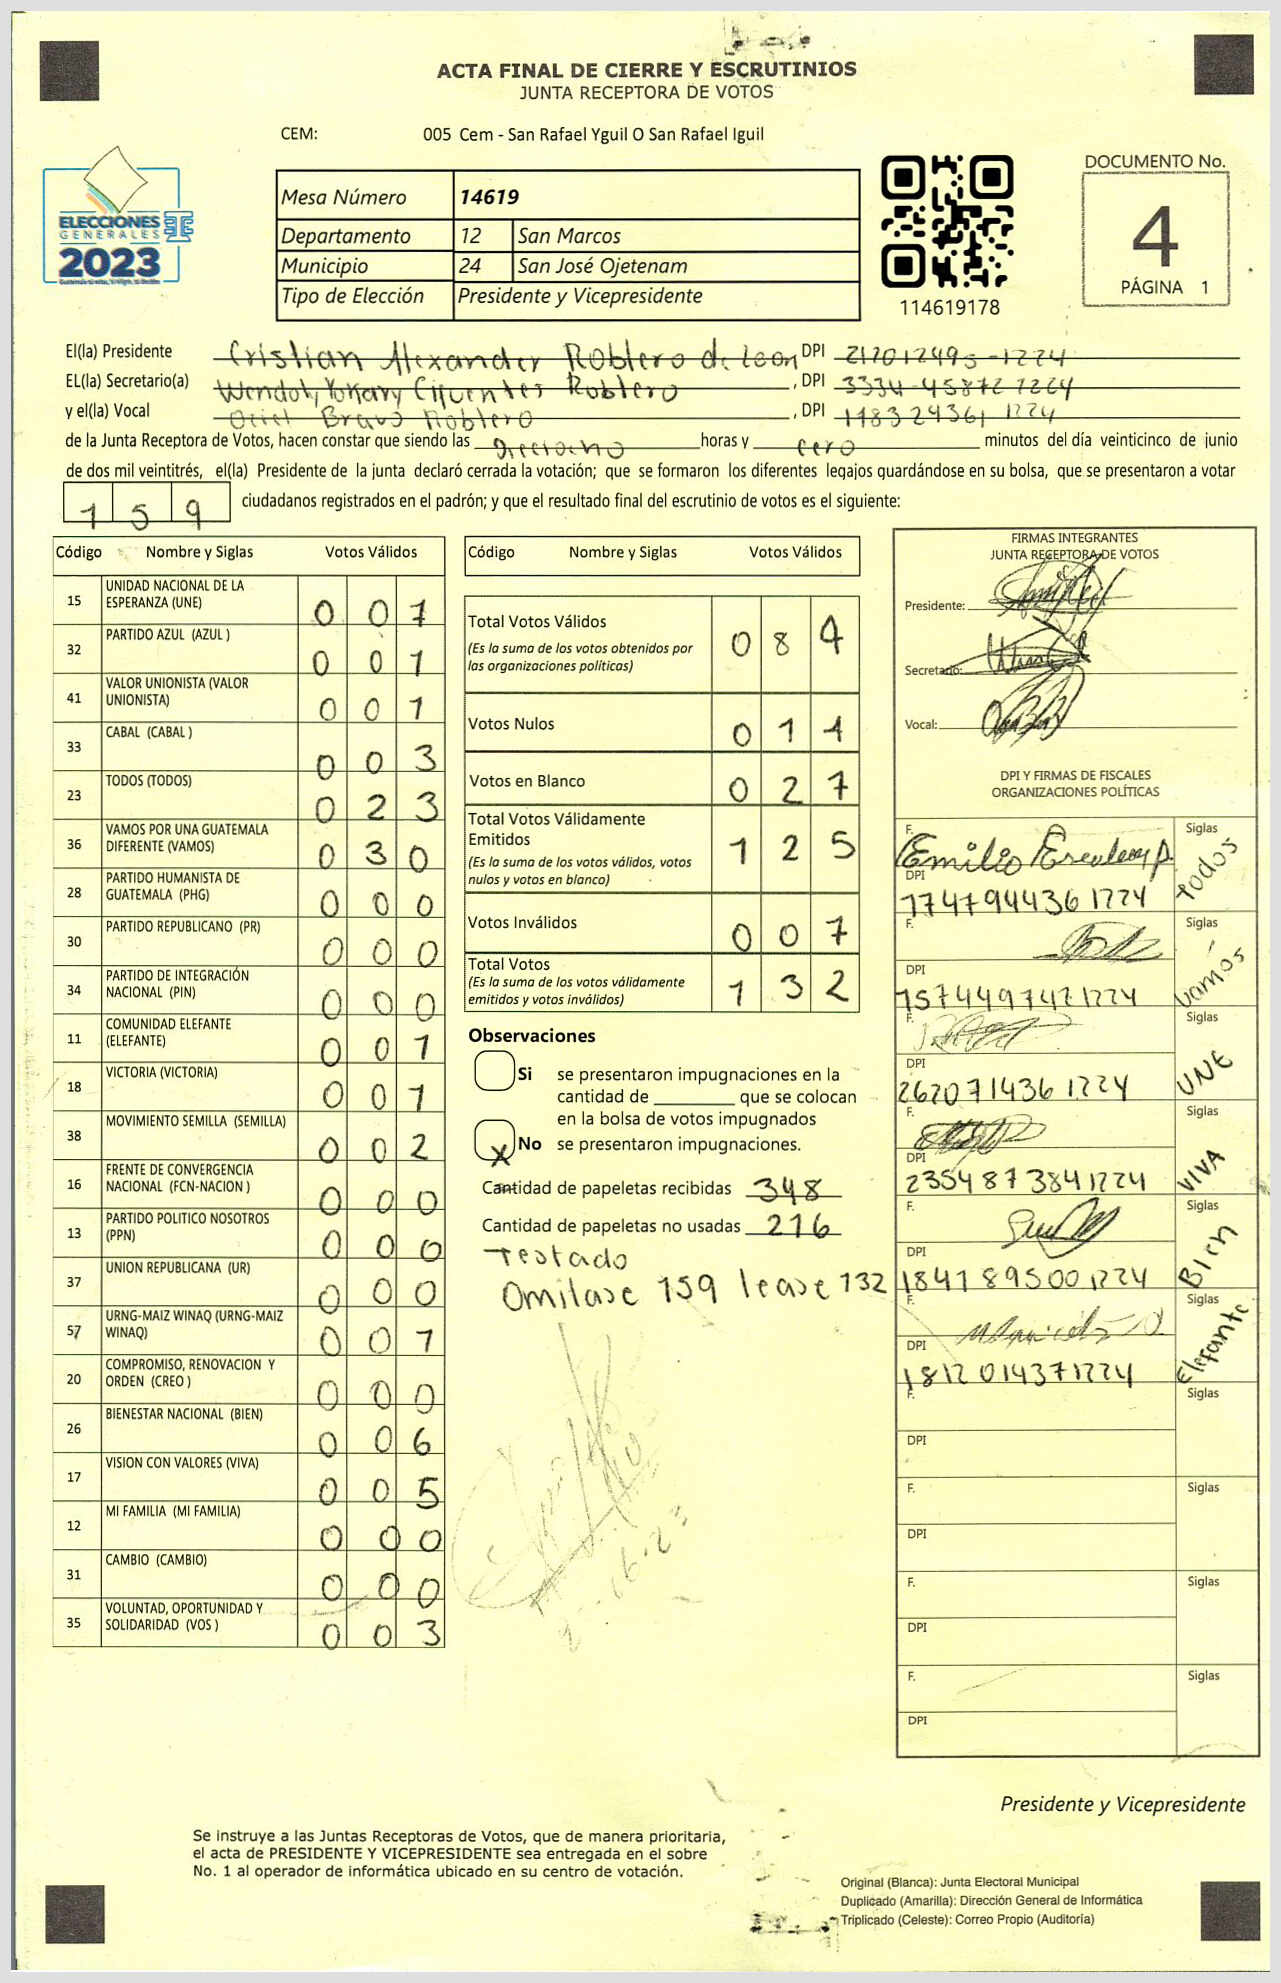 ACTA FINAL DE CIERRE Y ESCRUTINIOS
JUNTA RECEPTORA DE VOTOS
CEM: 005 Cem - San Rafael Yguil O San Rafael Iguil
ELECCIONES
GENERALES
2023
Mesa Número 14619
Departamento 12 San Marcos
Municipio 24 San José Ojetenam
Tipo de Elección Presidente y Vicepresidente
114619178
DOCUMENTO No.
4
PÁGINA 1
El(la) Presidente Cristian Alexander Roblero de Leon DPI 217012495-1224
EL(la) Secretario(a) Yokary Cifuentes Roblero , DPI 3334-45872 1224
y el(la) Vocal Bravo Roblero , DPI 118324361 1224
de la Junta Receptora de Votos, hacen constar que siendo las Dieciocho horas y cero minutos del día veinticinco de junio
de dos mil veintitrés, el(la) Presidente de la junta declaró cerrada la votación; que se formaron los diferentes legajos guardándose en su bolsa, que se presentaron a votar
159 ciudadanos registrados en el padrón; y que el resultado final del escrutinio de votos es el siguiente:
Código Nombre y Siglas Votos Válidos
15 UNIDAD NACIONAL DE LA ESPERANZA (UNE) 007
32 PARTIDO AZUL (AZUL ) 001
41 VALOR UNIONISTA (VALOR UNIONISTA) 001
33 CABAL (CABAL ) 003
23 TODOS (TODOS) 023
36 VAMOS POR UNA GUATEMALA DIFERENTE (VAMOS) 030
28 PARTIDO HUMANISTA DE GUATEMALA (PHG) 000
30 PARTIDO REPUBLICANO (PR) 000
34 PARTIDO DE INTEGRACIÓN NACIONAL (PIN) 000
11 COMUNIDAD ELEFANTE (ELEFANTE) 001
18 VICTORIA (VICTORIA) 001
38 MOVIMIENTO SEMILLA (SEMILLA) 002
16 FRENTE DE CONVERGENCIA NACIONAL (FCN-NACION ) 000
13 PARTIDO POLITICO NOSOTROS (PPN) 000
37 UNION REPUBLICANA (UR) 000
57 URNG-MAIZ WINAQ (URNG-MAIZ WINAQ) 001
20 COMPROMISO, RENOVACION Y ORDEN (CREO ) 000
26 BIENESTAR NACIONAL (BIEN) 006
17 VISION CON VALORES (VIVA) 005
12 MI FAMILIA (MI FAMILIA) 000
31 CAMBIO (CAMBIO) 000
35 VOLUNTAD, OPORTUNIDAD Y SOLIDARIDAD (VOS ) 003
Código Nombre y Siglas Votos Válidos
Total Votos Válidos 084
(Es la suma de los votos obtenidos por
las organizaciones políticas)
Votos Nulos 014
Votos en Blanco 027
Total Votos Válidamente
Emitidos 125
(Es la suma de los votos válidos, votos
nulos y votos en blanco)
Votos Inválidos 007
Total Votos 132
(Es la suma de los votos válidamente
emitidos y votos inválidos)
Observaciones
Si se presentaron impugnaciones en la
cantidad de ________ que se colocan
en la bolsa de votos impugnados
X No se presentaron impugnaciones.
Cantidad de papeletas recibidas 348
Cantidad de papeletas no usadas 216
Testado
Omitase 159 lease 132
FIRMAS INTEGRANTES
JUNTA RECEPTORA DE VOTOS
Presidente:
Secretario:
Vocal:
DPI Y FIRMAS DE FISCALES
ORGANIZACIONES POLÍTICAS
F. Emilio Siglas
DPI 1747944361224 Todos
F. Siglas
DPI 1574497471224 Vamos
F. Siglas
DPI 2620714361224 UNE
F. Siglas
DPI 2354873841224 VIVA
F. Siglas
DPI 1841895001224 BIen
F. Siglas
DPI 1812014371224 Elefante
F. Siglas
DPI
F. Siglas
DPI
F. Siglas
DPI
F. Siglas
DPI
Presidente y Vicepresidente
Se instruye a las Juntas Receptoras de Votos, que de manera prioritaria,
el acta de PRESIDENTE Y VICEPRESIDENTE sea entregada en el sobre
No. 1 al operador de informática ubicado en su centro de votación.
Original (Blanca): Junta Electoral Municipal
Duplicado (Amarilla): Dirección General de Informática
Triplicado (Celeste): Correo Propio (Auditoría)